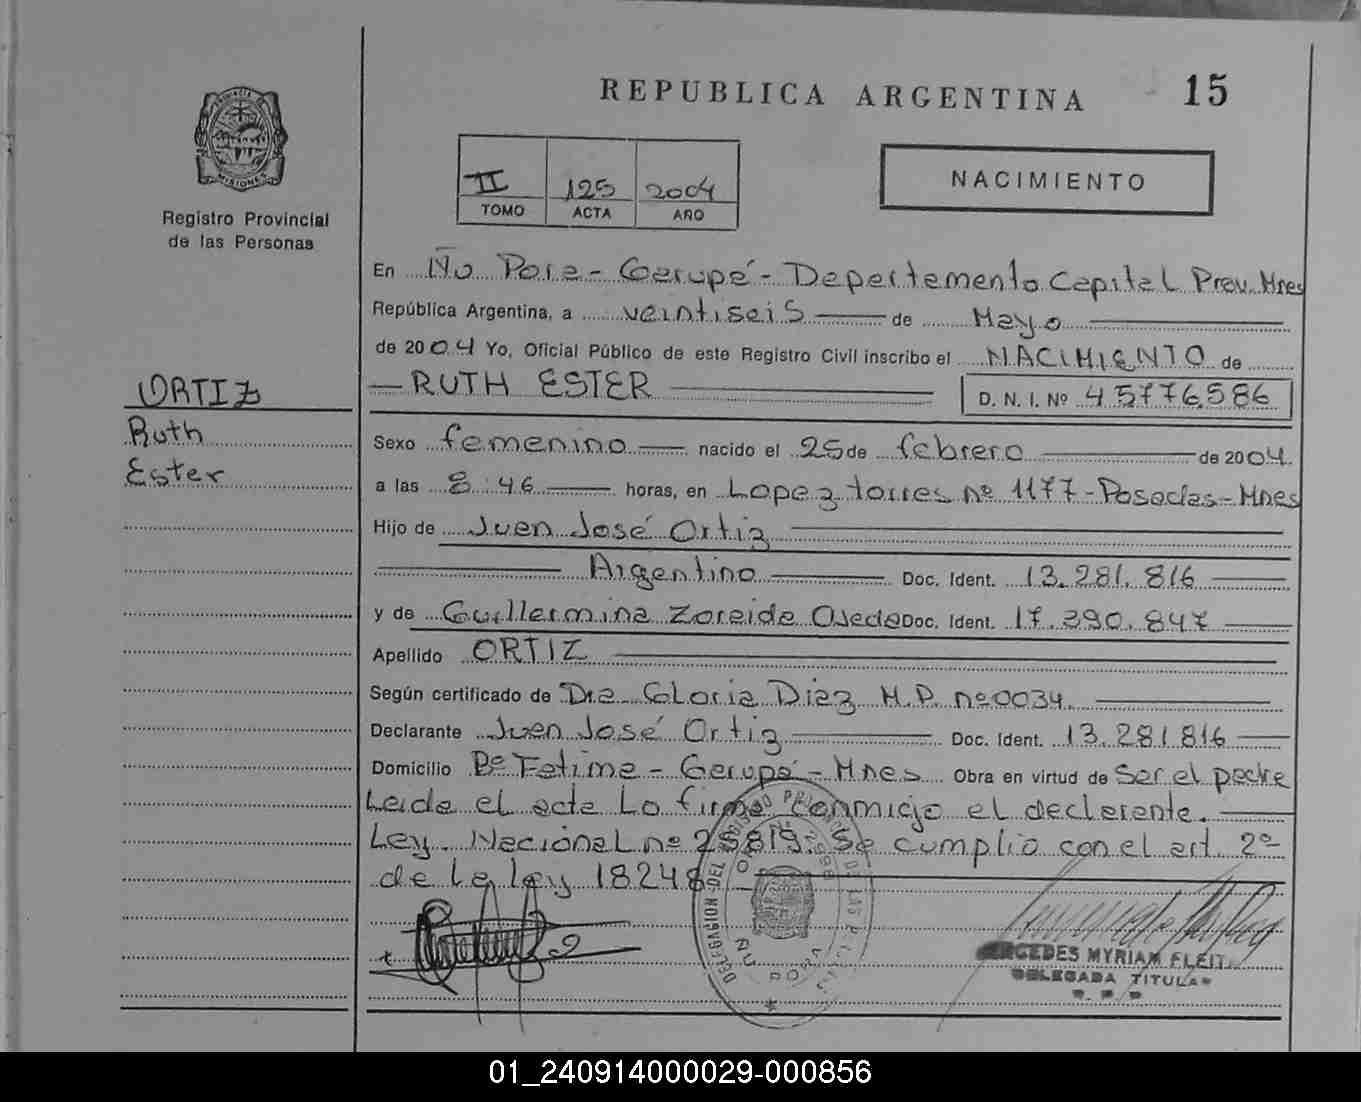 REPUBLICA ARGENTINA 15
PROVINCIA DE
MISIONES
Registro Provincial
de las Personas
II 125 2004
TOMO ACTA AÑO
NACIMIENTO
En Ñu Pora - Garupá - Departamento Capital Prov. Mnes
República Argentina, a veintiseis de Mayo
de 2004 Yo, Oficial Público de este Registro Civil inscribo el NACIMIENTO de
RUTH ESTER D. N. I. Nº 45776.586
ORTIZ
Ruth
Ester
Sexo femenino nacido el 25 de febrero de 2004.
a las 8:46 horas, en Lopez torres nº 1177 - Posadas - Mnes
Hijo de Juan José Ortiz
Argentino Doc. Ident. 13.281.816
y de Guillermina Zoraida Ojeda Doc. Ident. 17.290.847
Apellido ORTIZ
Según certificado de Dra. Gloria Diaz M.P. nº 0034.
Declarante Juan José Ortiz Doc. Ident. 13.281816
Domicilio Bº Fatima - Garupá - Mnes Obra en virtud de Ser el padre
Leida el acta Lo firma conmigo el declarante.
Ley. Nacional nº 25819. Se cumplio con el art. 2º
de la Ley 18248
DELEGACION DEL REGISTRO
ÑU PORA
MYRIAM FLEIT
DELEGADA TITULAR
01_240914000029-000856